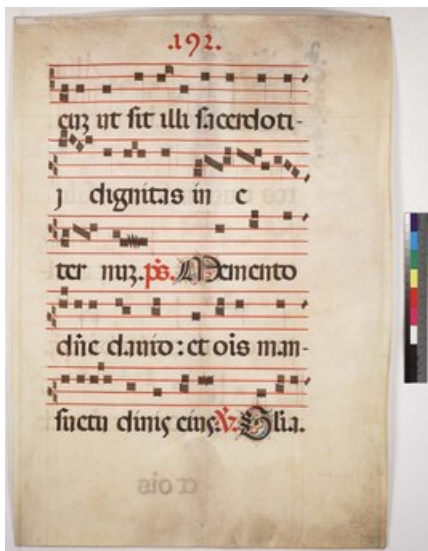 .192.
eū ut sit illi sacerdoti-
j dignitas in e
ter nuʒ. ps. Memento
dn̄e dauid : et ois man-
suetu dinis eius. V. Glia.